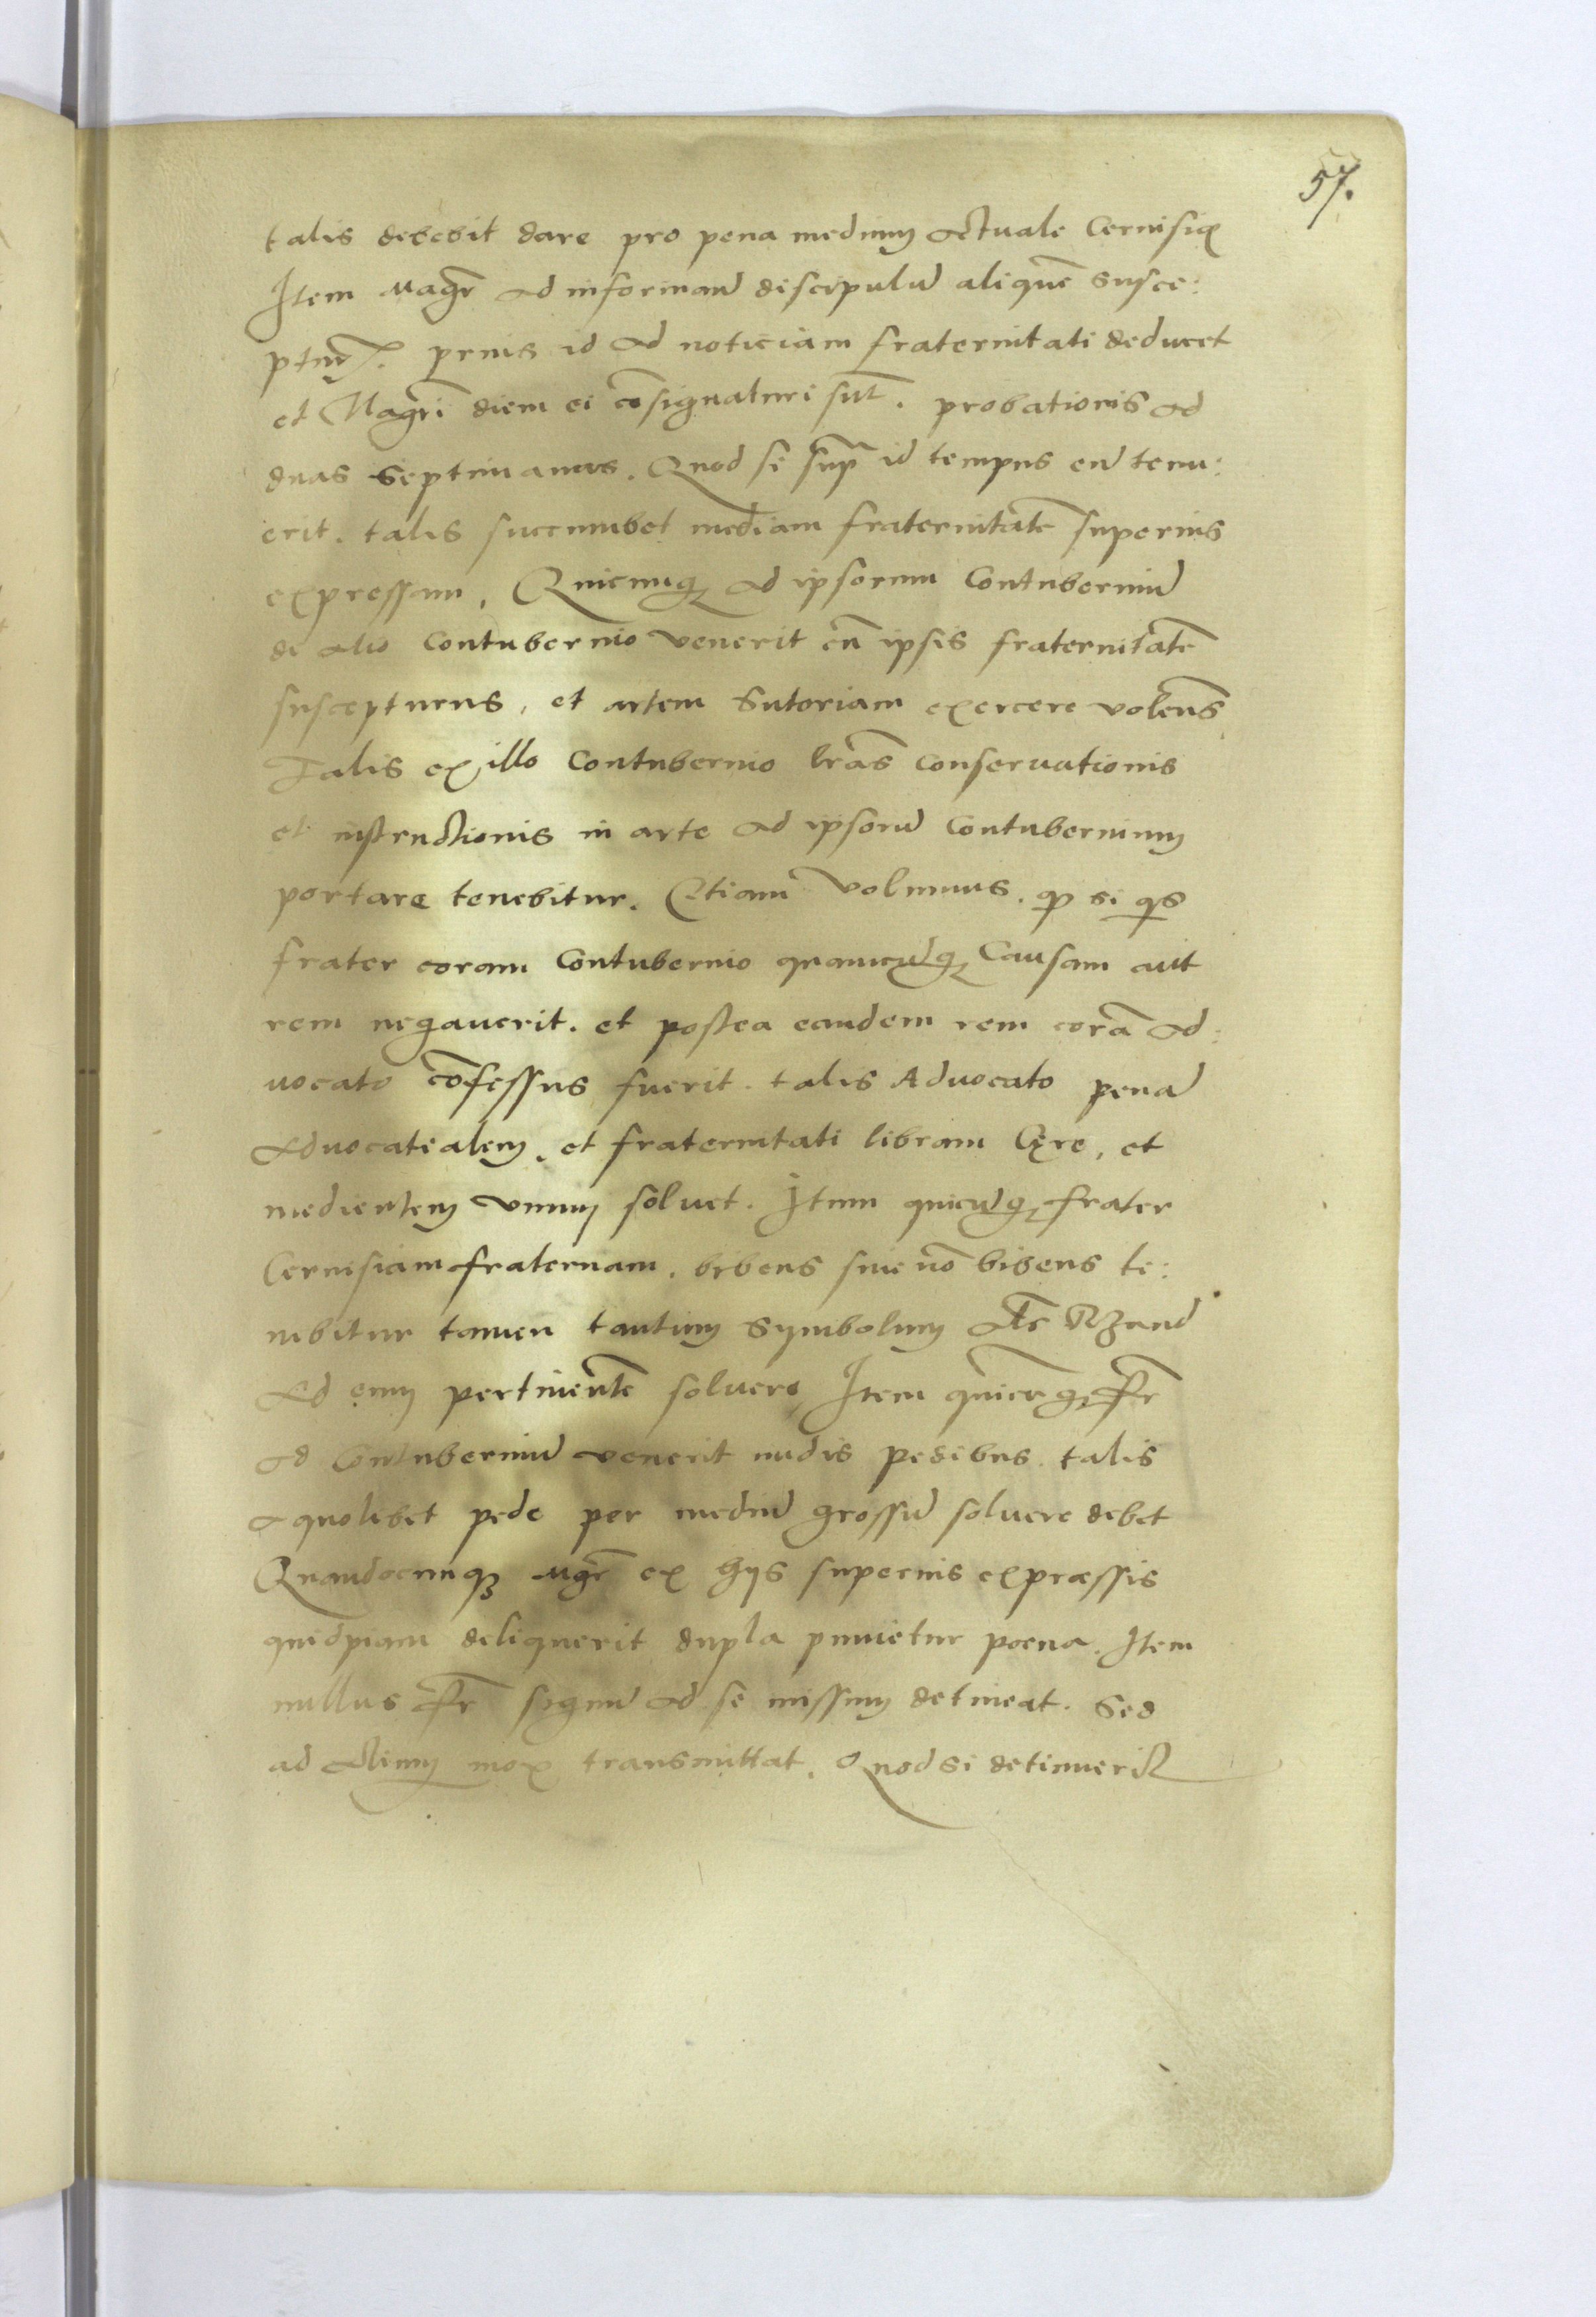 57.
talis debebit dare pro pena medium actuale Cervisię
Item Magr̄ ad informand discipulū aliquē susce:
ptur9. prius id ad noticiam fraternitati deducet
et Magr̄i diem ei cōsignaturi sūt. probationis ad
duas septimanas. Quod si supͣ id tempus eū tenu:
erit. talis succumbet mediam fraternitatē superius
expressam. Quicunqꝫ ad ipsorum Contuberniū
de alio Contubernio venerit cū ipsis fraternitatē
suscepturus, et artem Sutoriam exercere volens
Talis ex illo Contubernio lr̄as conservationis
et instructionis in arte ad ipsorū Contubernium
portare tenebitur. Etiam volumus. qp si qs
frater coram Contubernio quamcūqꝫ Causam aut
rem negaverit. et postea eandem rem corā ad:
vocato cōfessus fuerit. talis Advocato penā
Advocatialem, et fraternitati libram Cęre, et
medientem unum solvet. Item quicūqꝫ frater
Cervisiam fraternam. bibens sive nō bibens te:
nebitur tamen tantum Symbolum als Rzand
Ad eum pertinentē solvere Item quicūqꝫ Fr̄
ad Contuberniū venerit nudis pedibus. talis
a quolibet pede per mediū grossū solvere debet
Quandocunqꝫ Mgr̄ ex hijs superius expræssis
quidpiam deliquerit dupla punietur poena. Item
nullus Fr̄ signū ad se missum detineat. Sed
ad alium mox transmittat. Quod si detinuerit